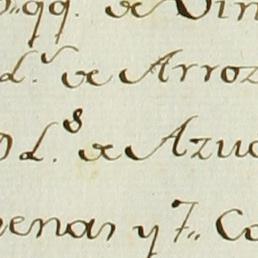 qq. de Vin
L.s de Arroz
L.s de Azuc
enas y 7,, Co